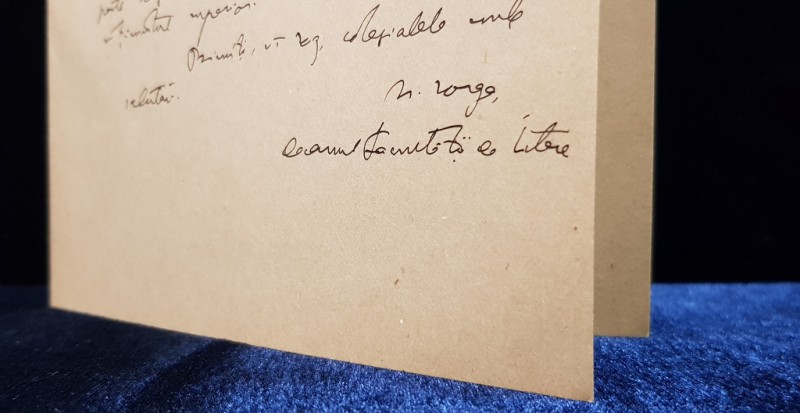 parte
superior.
Primiți, vă rog, colegialele mele
salutări.
N. Iorga,
decanul Facultății de Litere